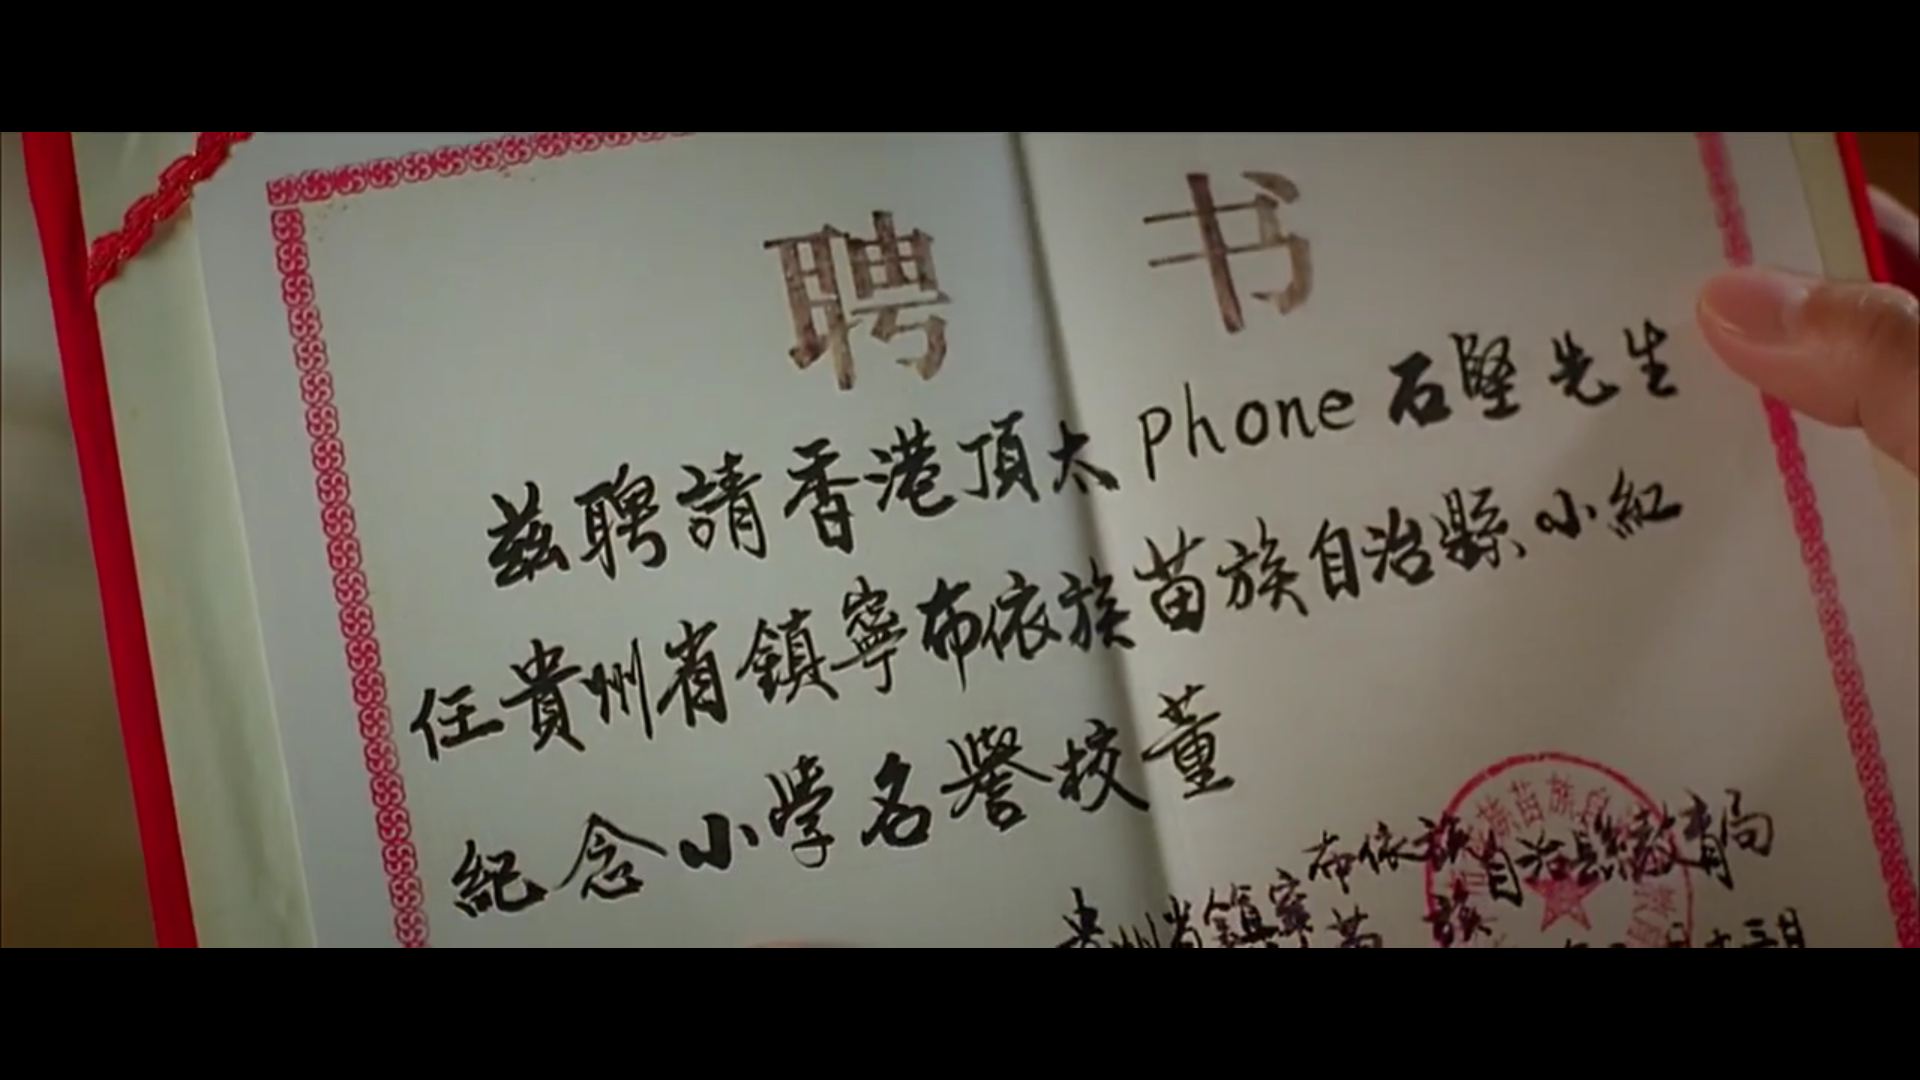 聘书
茲聘請香港頂太phone石堅先生
任貴州省鎮寧布依族苗族自治縣小紅
紀念小學名譽校董
布依族自治縣教育局
貴州省鎮寧苗族
十三日